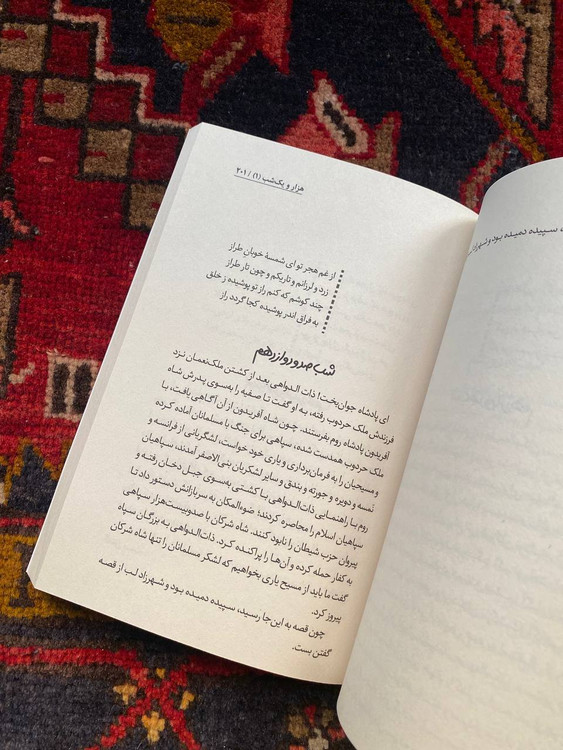 هزار و یک‌شب (۱) / ۲۰۱
از غم هجر تو ای شمسهٔ خوبان طراز
زرد و لرزانم و تاریکم و چون تار طراز
چند کوشم که کنم راز تو پوشیده ز خلق
به فراق اندر پوشیده کجا گردد راز
شب صد و دوازدهم
ای پادشاه جوان‌بخت! ذات الدواهی بعد از کشتن ملک‌نعمان نزد
فرزندش ملک حردوب رفته، به او گفت تا صفیه را به‌سوی پدرش شاه
آفریدون پادشاه روم بفرستند. چون شاه آفریدون از آن آگاهی یافت، با
ملک حردوب همدست شده، سپاهی برای جنگ با مسلمانان آماده کرده
و مسیحیان را به فرمان‌برداری و یاری خود خواست، لشگریانی از فرانسه و
نمسه و دوبره و جورنه و بندق و سایر لشکریان بنی‌الاصفر آمدند، سپاهیان
روم با راهنمایی ذات‌الدواهی با کشتی به‌سوی جبل دخان رفته و
سپاهیان اسلام را محاصره کردند؛ ضوءالمکان به سربازانش دستور داد تا
پیروان حزب شیطان را نابود کنند. شاه شرکان با صدوبیست‌هزار سپاهی
به کفار حمله کرده و آن‌ها را پراکنده کرد. ذات‌الدواهی به بزرگان سپاه
گفت ما باید از مسیح یاری بخواهیم که لشکر مسلمانان را تنها شاه شرکان
پیروز کرد.
چون قصه به این جا رسید، سپیده دمیده بود و شهرزاد لب از قصه
گفتن بست.
سپیده دمیده بود و شهرزاد